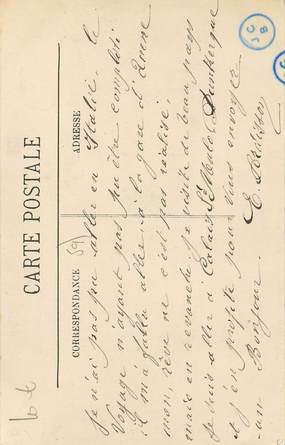 CARTE POSTALE
CORRESPONDANCE
ADRESSE
59
Je n'ai pas pu aller en Italie. le
Voyage n'ayant pas pu être complet
il m'a fallu aller à la gare d'
mon rêve ne c'est pas réalisé,
mais en revanche je visite de beau pays
je suis aller à Calais St Malo Dunkerque
et j'en profite pour vous envoyer
un Bonjour.
E.